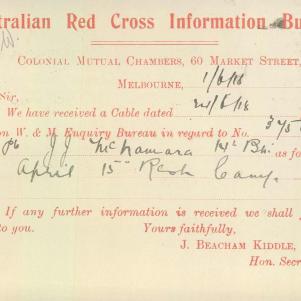 tralian Red Cross Information Bu
Colonial Mutual Chambers, 60 Market Street,
Melbourne, 1/6/18
Sir,
We have received a Cable dated
on W. & M. Enquiry Bureau in regard to No. 375
Pte J J McNamara 14th Bn. as fo
April 15th Camp.
If any further information is received we shall
to you. Yours faithfully,
J. Beacham Kiddle,
Hon. Secr